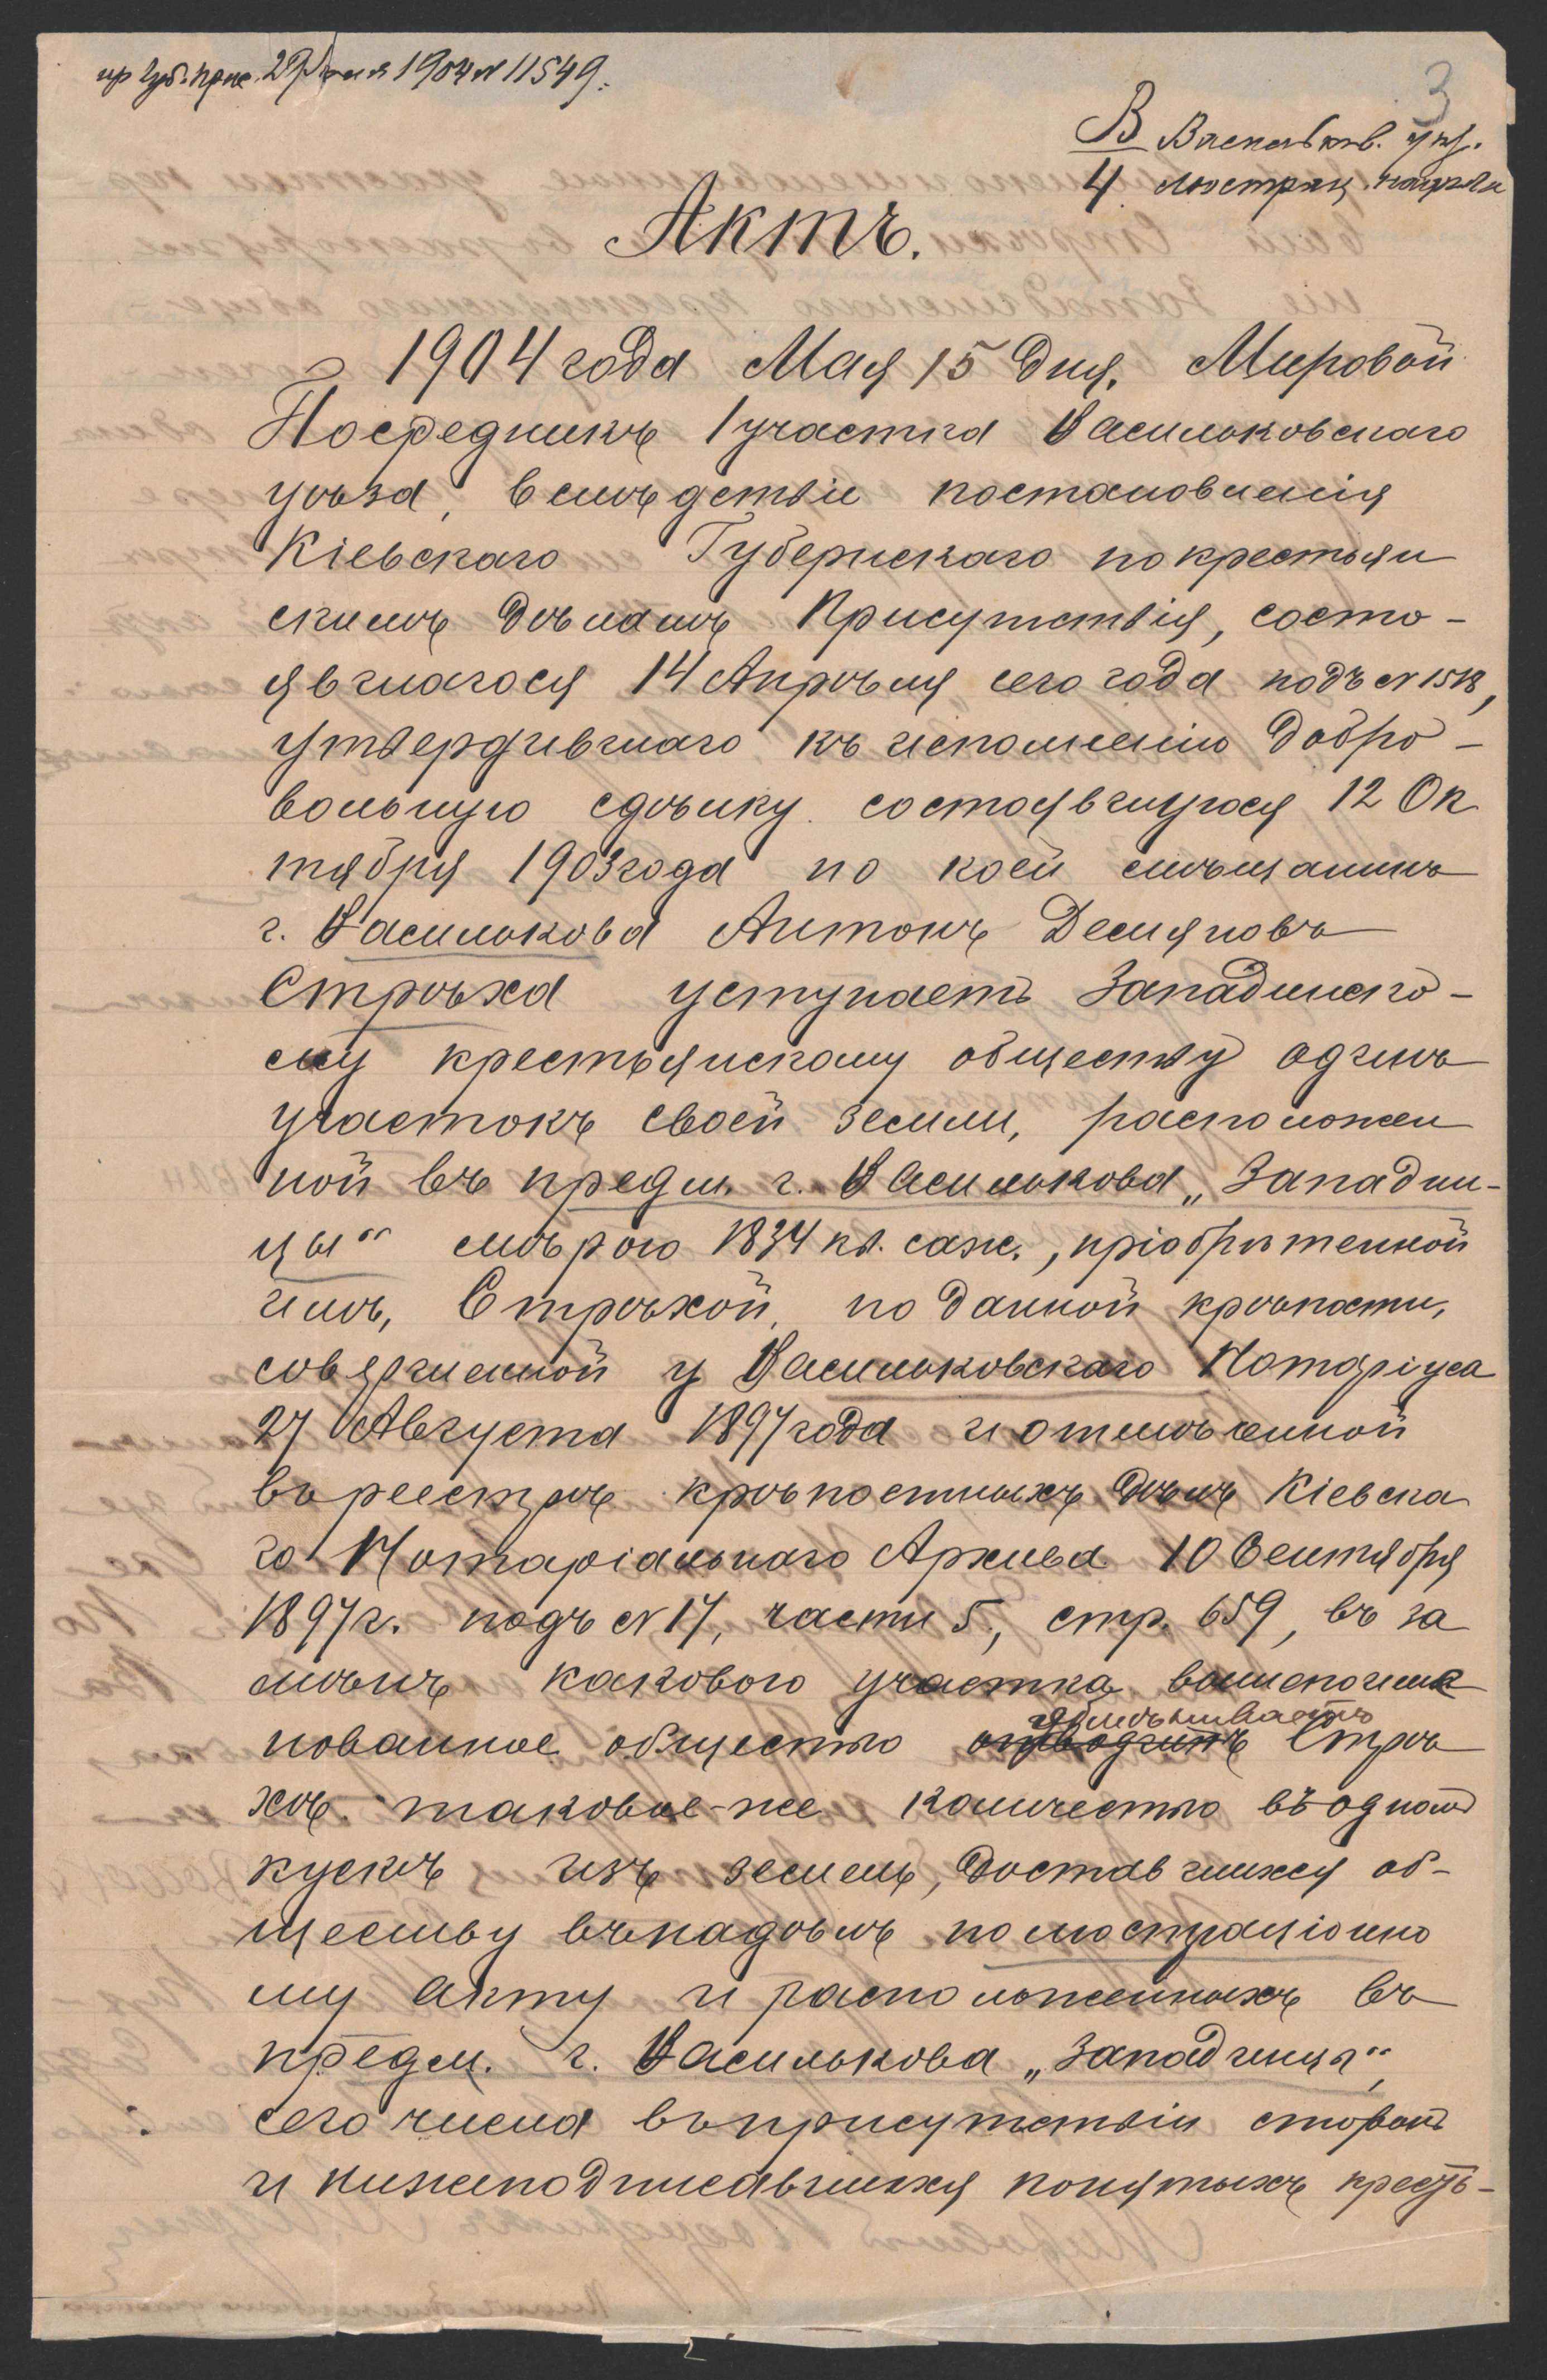 пр Губ. прис. 29 мая 1904 № 11549.
3
В Васильков. уѣз.
4 люстрац. надѣлы
Актъ.
1904 года Мая 15 дня, Мировой
Посредникъ 1 участка Васильковскаго
уѣзда, вслѣдствіи постановленія
Кіевскаго Губернскаго по крестьян
скимъ дѣламъ Присутствія, состо-
явшагося 14 Апрѣля сего года подъ № 1518,
утвердившаго къ исполненію добро-
вольную сдѣлку состоявшуюся 12 Ок
тября 1903 года по коей мѣщанинъ
г. Василькова Антонъ Демяновъ
Стрѣха уступаетъ Западинско-
му крестьянскому обществу одинъ
участокъ своей земли, расположен
ной въ предм. г. Василькова „Западин-
цы“ мѣрою 1834 кв. саж., пріобрѣтенной
имъ, Стрѣхой, по данной крѣпости,
совершенной у Васильковскаго Нотаріуса
27 Августа 1897 года и отмѣченной
въ реестрѣ крѣпостныхъ дѣлъ Кіевска
го Нотаріальнаго Архива 10 Сентября
1897 г. подъ № 17, части 5, стр. 659, въ за
мѣнъ каковаго участка вышепоиме
нованное общество отводитъ Стрѣ
обмѣниваетъ
хѣ таковое-же количество въ одномъ
кускѣ изъ земель, доставшихся об-
ществу въ надѣлъ по люстраціонно
му акту и расположенныхъ въ
предм. г. Василькова „Западинцы“,
сего числа въ присутствіи сторонъ
и нижеподписавшихся понятыхъ кресть-